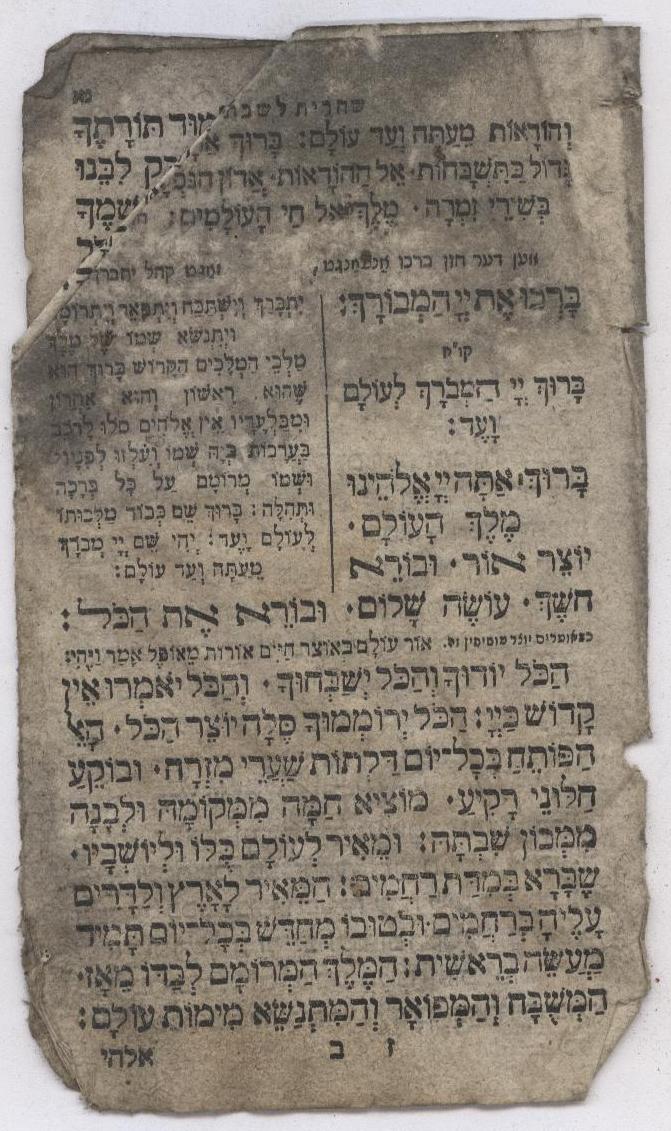 מא
שחרית לשבת
וְהוֹדָאוֹת מֵעַתָּה וְעַד עוֹלָם: בָּרוּךְ
גָּדוֹל בַּתִּשְׁבָּחוֹת· אֵל הַהוֹדָאוֹת·
בְּשִׁירֵי זִמְרָה· מֶלֶךְ אֵל חַי הָעוֹלָמִים:
תּוֹרָתֶךָ
לִבֵּנוּ
שְׁמֶךָ
ווען דער חזן ברכו
זאגט קהל יתברך
בָּרְכוּ אֶת יְיָ הַמְבוֹרָךְ:
קו״ח
בָּרוּךְ יְיָ הַמְבֹרָךְ לְעוֹלָם
וָעֶד:
בָּרוּךְ· אַתָּה יְיָ אֱלֹהֵינוּ
מֶלֶךְ הָעוֹלָם·
יוֹצֵר אוֹר· וּבוֹרֵא
יִתְבָּרַךְ וְיִשְׁתַּבַּח וְיִתְפָּאַר וְיִתְרוֹמַם
וְיִתְנַשֵּׂא שְׁמוֹ שֶׁל מֶלֶךְ
מַלְכֵי הַמְּלָכִים הַקָּדוֹשׁ בָּרוּךְ הוּא
שֶׁהוּא רִאשׁוֹן וְהוּא אַחֲרוֹן
וּמִבַּלְעָדָיו אֵין אֱלֹהִים סֹלּוּ לָרֹכֵב
בָּעֲרָבוֹת בְּיָהּ שְׁמוֹ וְעִלְזוּ לְפָנָיו
וּשְׁמוֹ מְרוֹמָם עַל כָּל בְּרָכָה
וּתְהִלָּה: בָּרוּךְ שֵׁם כְּבוֹד מַלְכוּתוֹ
לְעוֹלָם וָעֶד: יְהִי שֵׁם יְיָ מְבֹרָךְ
מֵעַתָּה וְעַד עוֹלָם:
חשֶׁךְ· עוֹשֶׂה שָׁלוֹם· וּבוֹרֵא אֶת הַכֹּל:
כשאומרים יוצר אור עוֹלָם בְּאוֹצַר חַיִּים אוֹרוֹת מֵאוֹפֶל אָמַר וַיֶּהִי:
הַכֹּל יוֹדוּךָ וְהַכֹּל יְשַׁבְּחוּךָ· וְהַכֹּל יֹאמְרוּ אֵין
קָדוֹשׁ כַּיְיָ: הַכֹּל יְרוֹמְמוּךָ סֶּלָה יוֹצֵר הַכֹּל· הָאֵל
הַפּוֹתֵחַ בְּכָל־יוֹם דַּלְתוֹת שַׁעֲרֵי מִזְרָח· וּבוֹקֵעַ
חַלּוֹנֵי רָקִיעַ· מוֹצִיא חַמָּה מִמְּקוֹמָהּ וּלְבָנָה
מִמְּכוֹן שִׁבְתָּהּ: וּמֵאִיר לְעוֹלָם כֻּלּוֹ וּלְיוֹשְׁבָיו·
שֶׁבָּרָא בְּמִדַּת רַחֲמִים: הַמֵּאִיר לָאָרֶץ וְלַדָּרִים
עָלֶיהָ בְּרַחֲמִים· וּבְטוּבוֹ מְחַדֵּשׁ בְּכָל־יוֹם תָּמִיד
מַעֲשֵׂה בְרֵאשִׁית: הַמֶּלֶךְ הַמְרוֹמָם לְבַדּוֹ מֵאָז·
הַמְשֻׁבָּח וְהַמְפוֹאָר וְהַמִּתְנַשֵּׂא מִימוֹת עוֹלָם:
ז ב אלהי